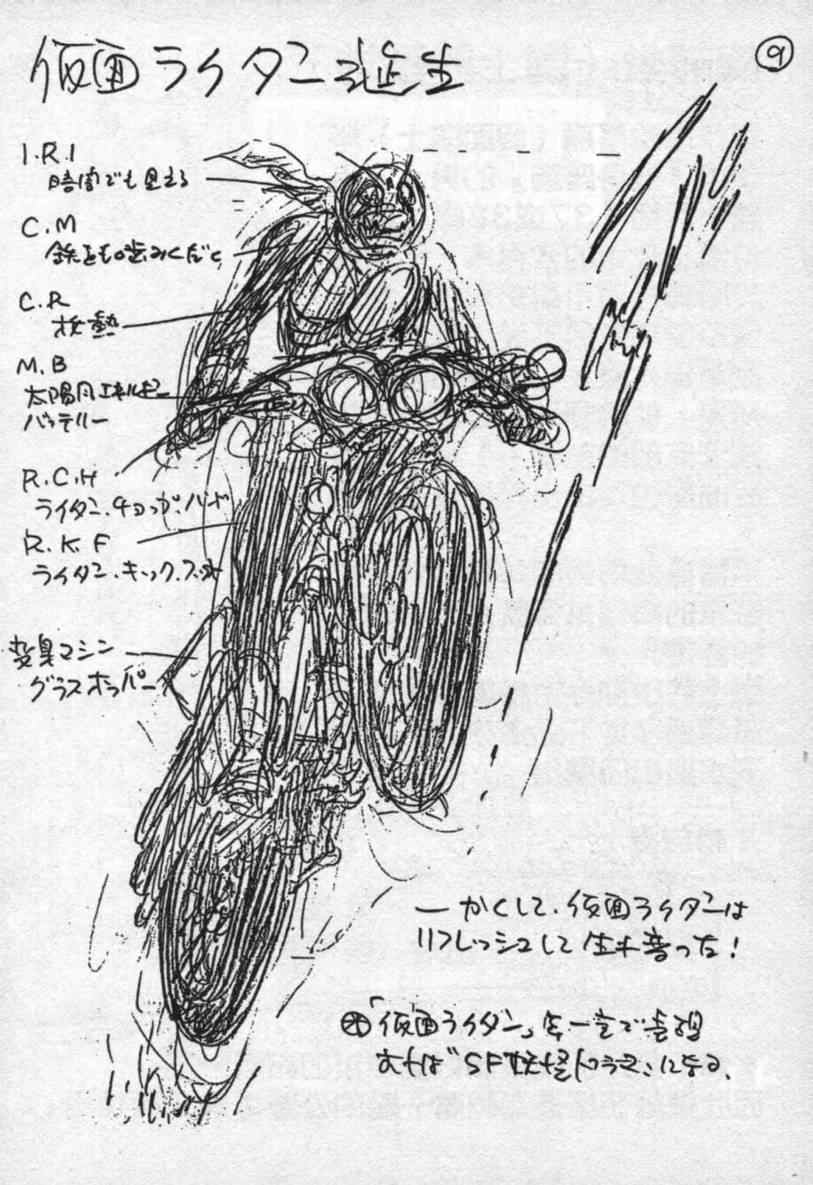 仮面ライダー誕生
9
I.R.I
暗闇でも見える
C.M
鉄をも噛みくだく
C.R
技 熱
M.B
太陽月エネルギー
バッテリー
R.C.H
ライダー・チョップ・ハンド
R.K.F
ライダー・キック・フット
変身マシン
グラスホッパー
― かくして、仮面ライダーは
リフレッシュして生れ変った!
「仮面ライダー」を一言で表現
すれば"SF怪怪ドラマ"になる。